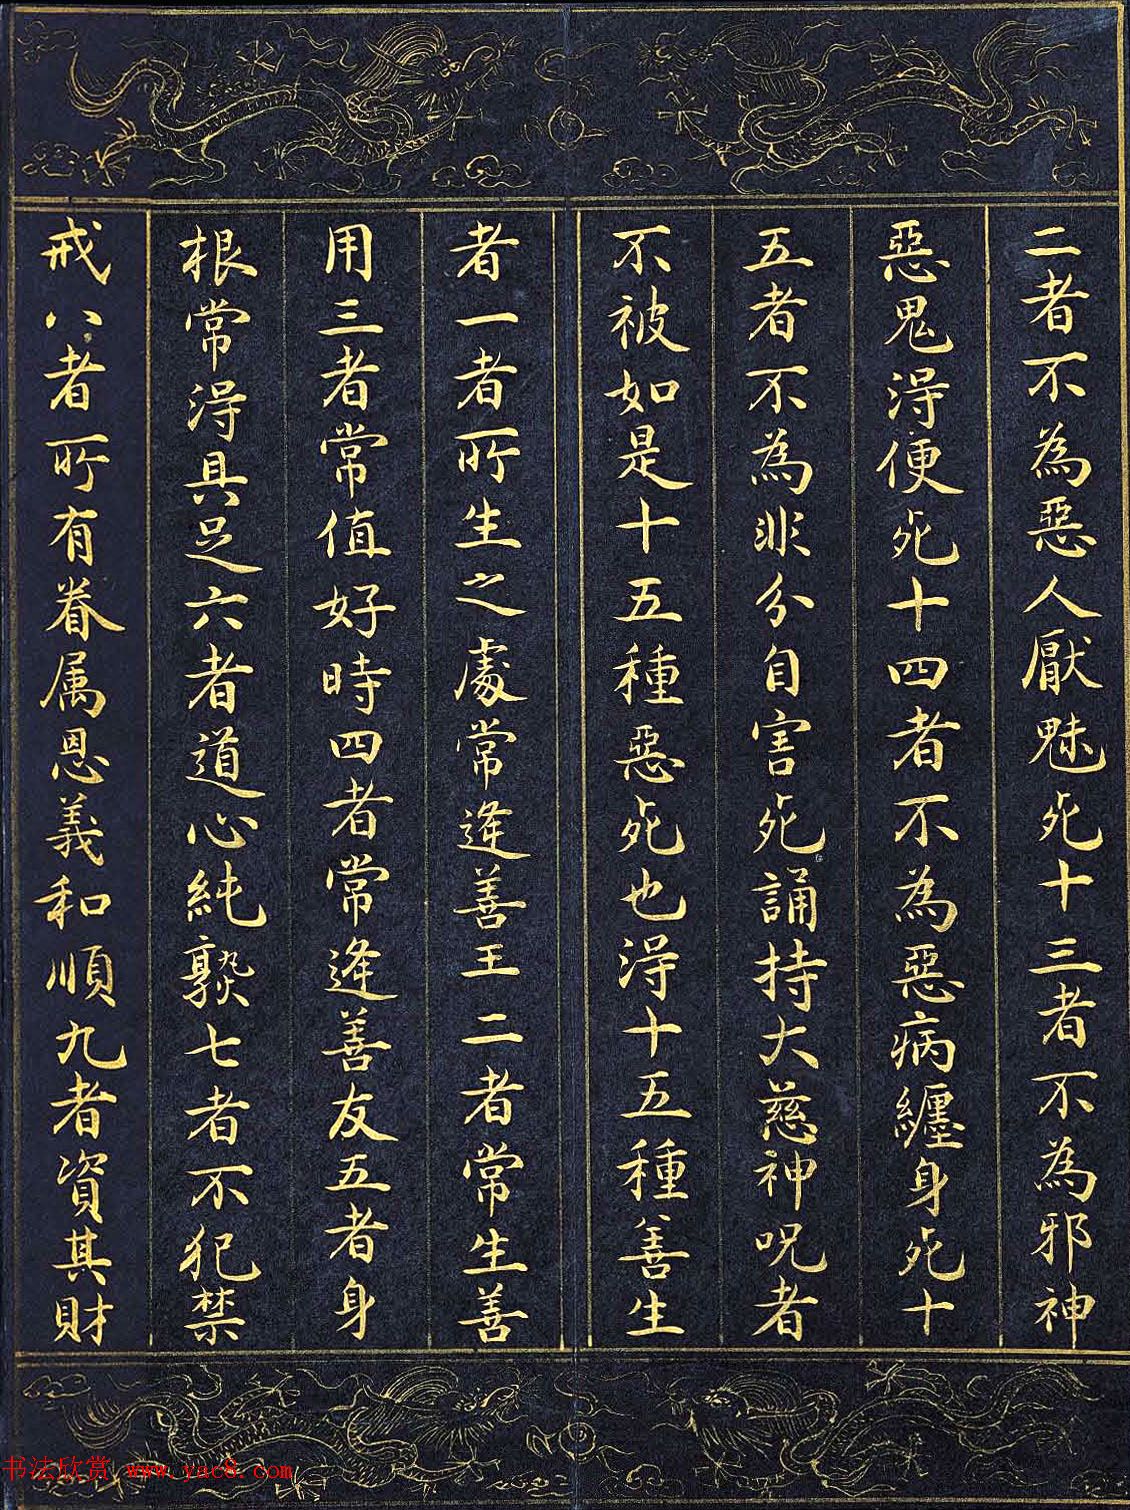 二者不為惡人厭魅死十三者不為邪神
惡鬼淂便死十四者不為惡病纏身死十
五者不為非分自害死誦持大慈神呪者
不被如是十五種惡死也淂十五種善生
者一者所生之處常逢善王二者常生善
用三者常值好時四者常逢善友五者身
根常淂具足六者道心純熟七者不犯禁
戒八者所有眷属恩義和順九者資其財
书法欣赏 www.yac8.com